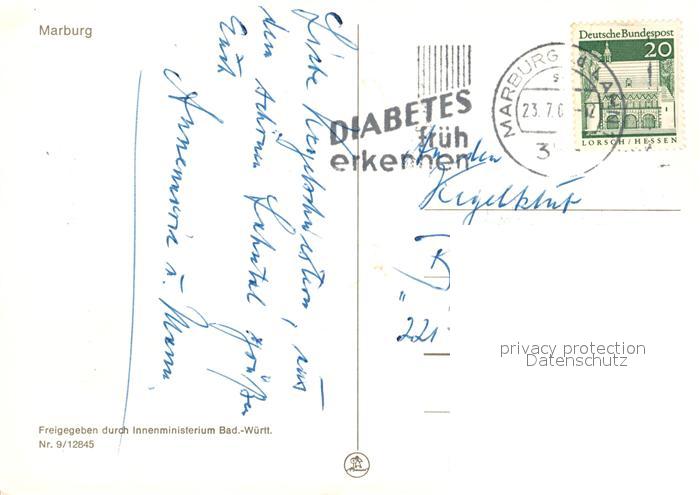 Marburg
Liebe Kegelschwestern, aus
dem schönen Lahntal grüßen
Euch
Annemarie u. Mann.
Freigegeben durch Innenministerium Bad.-Württ.
Nr. 9/12845
DIABETES
früh
erkennen
MARBURG
23.7.6 -12
Deutsche Bundespost
20
LORSCH/HESSEN
An den
Kegelklub
221
privacy protection
Datenschutz